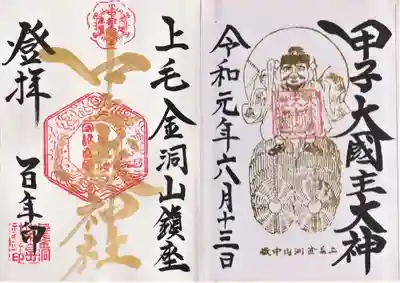 甲子大國主大神
令和元年六月十三日
上毛金洞山中嶽
上毛金洞山鎮座
中之嶽神社
登拝
百年印